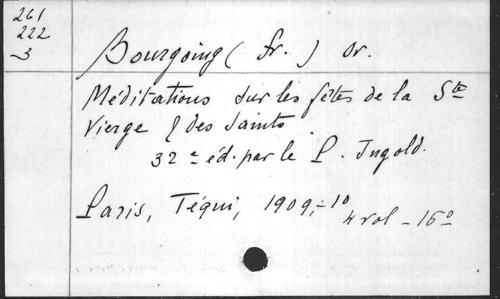 261
222
-3
Bourgoing (Fr.) Or.
Méditations sur les fêtes de la Ste
Vierge & des Saints.
32e éd. par le P. Ingold.
Paris, Téqui, 1909-10
4 vol - 16°